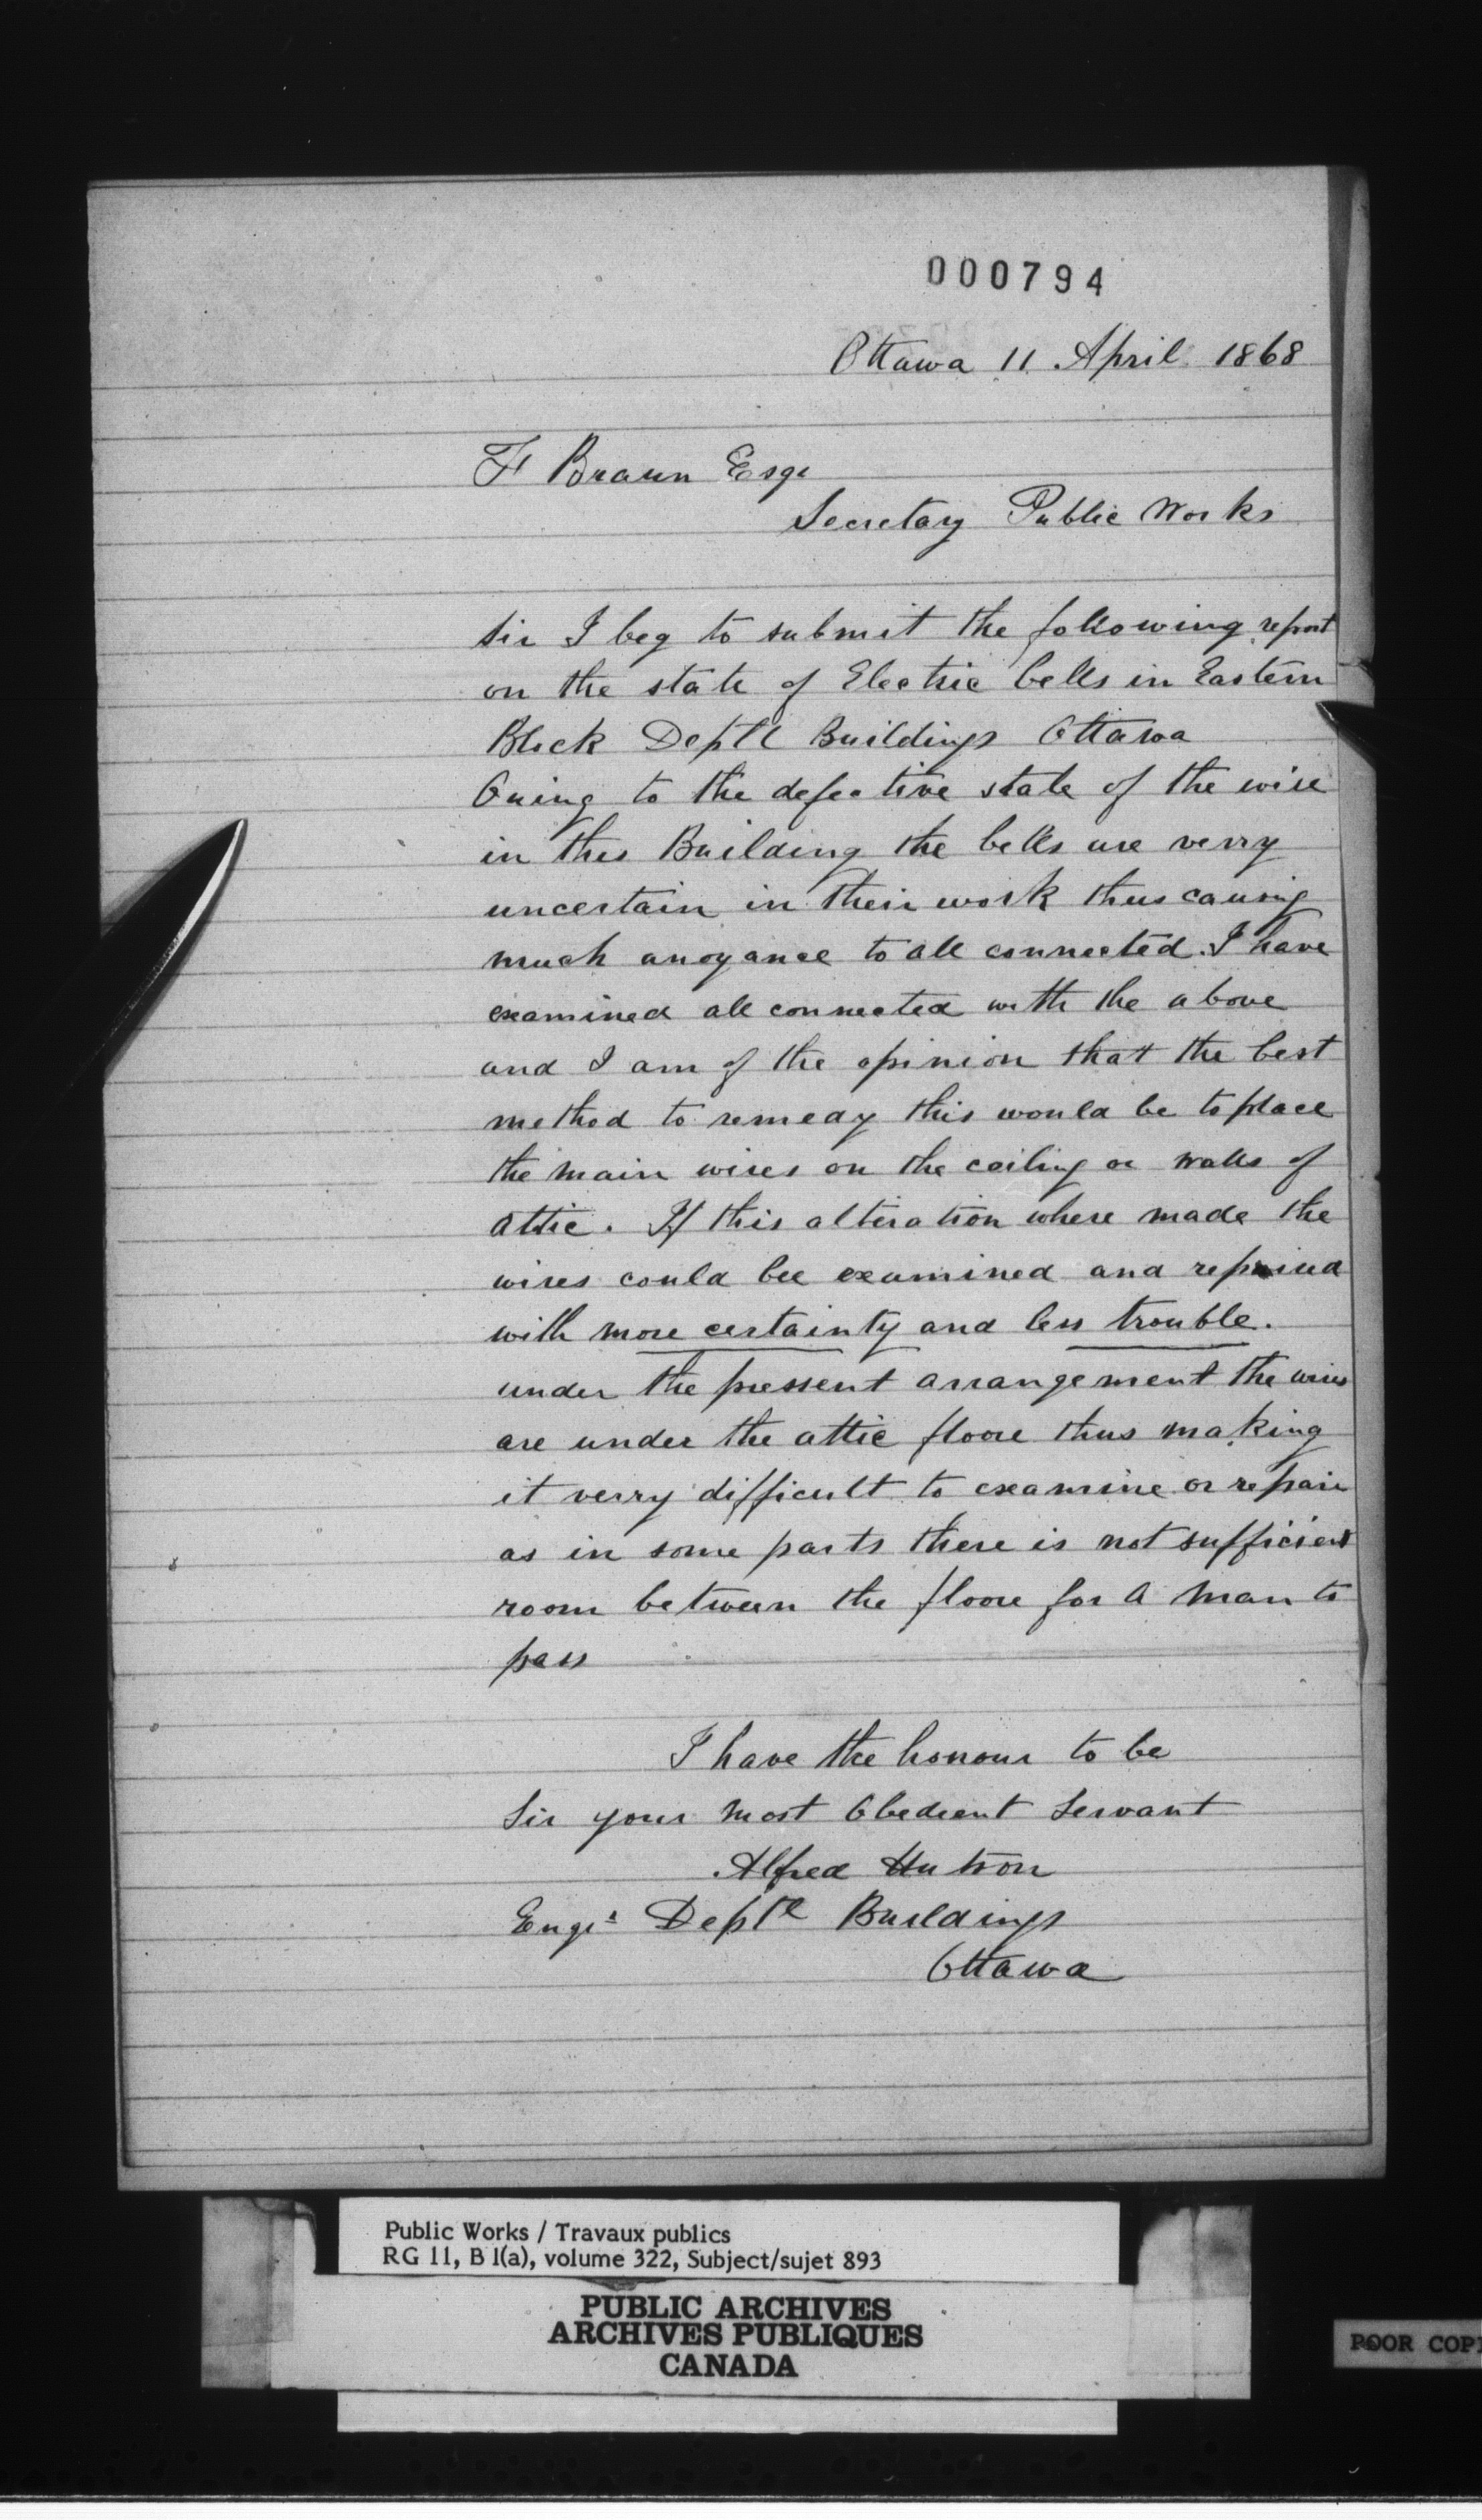 000794
Ottawa 11 April 1868
F Braun Esqr
Secretary Public Works
Sir I beg to submit the following report
on the state of Electric bells in Eastern
Block Deptl Buildings Ottawa
Owing to the defective state of the wire
in this Building the bells are verry
uncertain in their work thus causing
much anoyance to all connected. I have
examined all connected with the above
and I am of the opinion that the best
method to remedy this would be to place
the main wires on the ceiling or walls of
attic. If this alteration where made the
wires could bee examined and repaired
with more certainty and less trouble.
under the pressent arrangement the wires
are under the attic floore thus making
it verry difficult to examine or repair
as in some parts there is not sufficient
room between the floore for a man to
pass
I have the honour to be
Sir your most Obedient Servant
Alfred Hutson
Engr Deptl Buildings
Ottawa
Public Works / Travaux publics
RG 11, B 1(a), volume 322, Subject/sujet 893
PUBLIC ARCHIVES
ARCHIVES PUBLIQUES
CANADA
POOR COPI